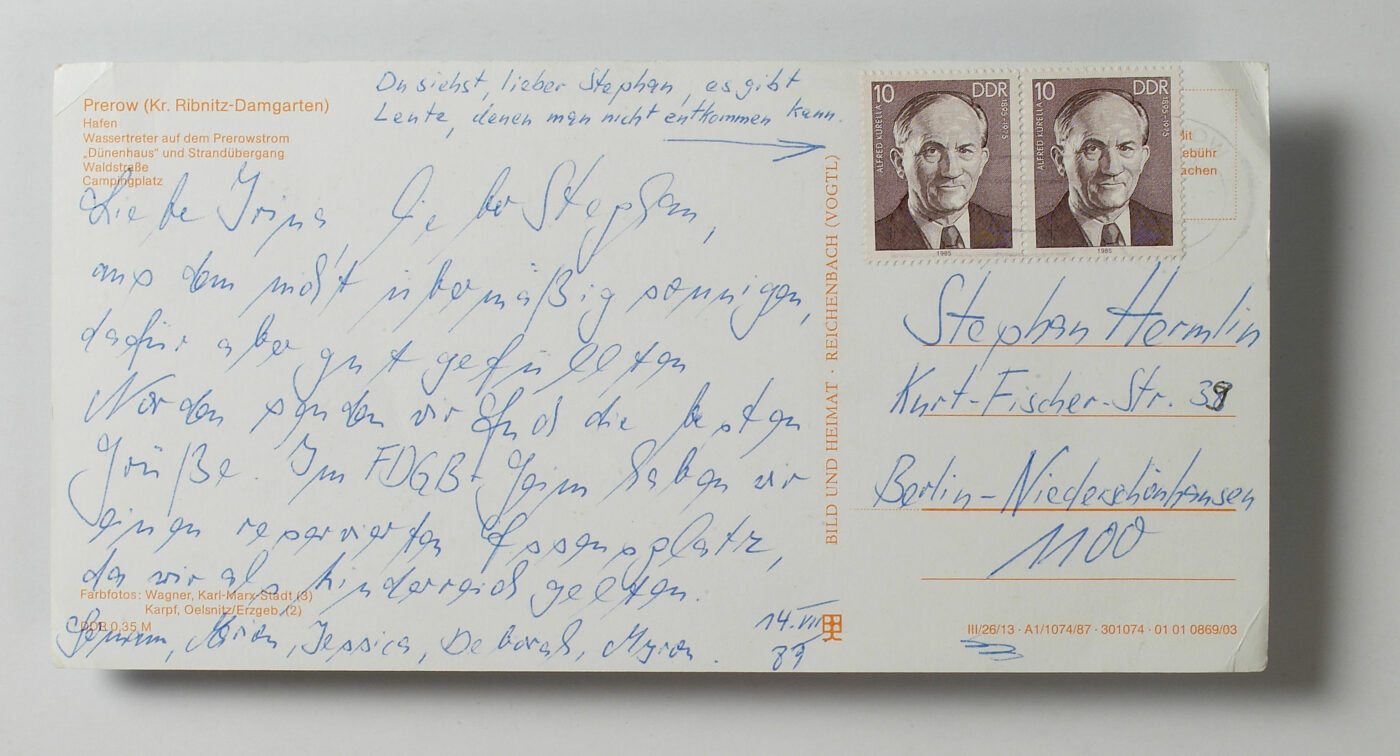 Prerow (Kr. Ribnitz-Damgarten)
Hafen
Wassertreter auf dem Prerowstrom
„Dünenhaus" und Strandübergang
Waldstraße
Campingplatz
Du siehst, lieber Stephan, es gibt
Leute, denen man nicht entkommen kann.
Liebe Irina lieber Stephan,
aus dem nicht übermäßig sonnigen,
dafür aber gut gefüllten
Norden senden wir Euch die besten
Grüße. Im FDGB-Heim haben wir
einen reservierten Essensplatz,
da wir als kinderreich gelten.
Marion, Jessica, Deborah, Myron.
14.VII
89
Farbfotos: Wagner, Karl-Marx-Stadt (3)
Karpf, Oelsnitz/Erzgeb. (2)
DDR 0,35 M
BILD UND HEIMAT · REICHENBACH (VOGTL)
10 DDR
ALFRED KURELLA 1895-1975
1985
10 DDR
ALFRED KURELLA 1895-1975
1985
Mit
ebühr
achen
Stephan Hermlin
Kurt-Fischer-Str. 39
Berlin-Niederschönhausen
1100
III/26/13 · A1/1074/87 · 301074 · 01 01 0869/03